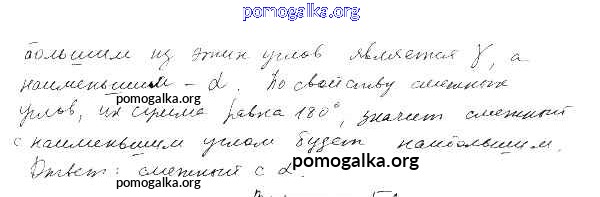 pomogalka.org
большим из этих углов является γ, а
наименьшим – α. По свойству смежных
pomogalka.org
углов, их сумма равна 180°, значит смежный
с наименьшим углом будет наибольшим.
pomogalka.org
Ответ: смежный с α.
pomogalka.org